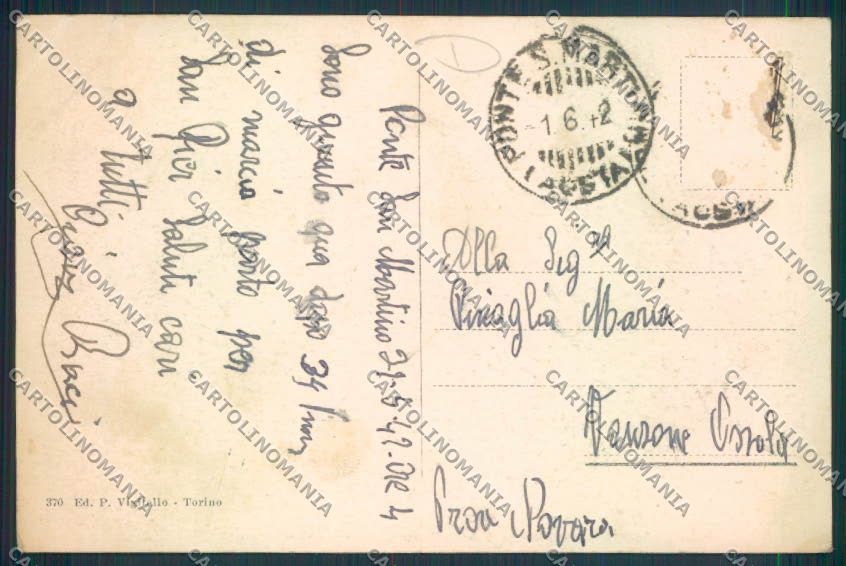 Ponte San Martino 29-5-42-ore 4
Sono giunto qua dopo 34 km
di marcia parto per
San Pier Saluti cari
a tutti
Baci
PONTE S. MARTINO
(AOSTA)
1.6.42
AOSTA
Alla Sig ra
Maria
Vanzone Ossola
Prov Novara
370 Ed. P. - Torino
CARTOLINOMANIA